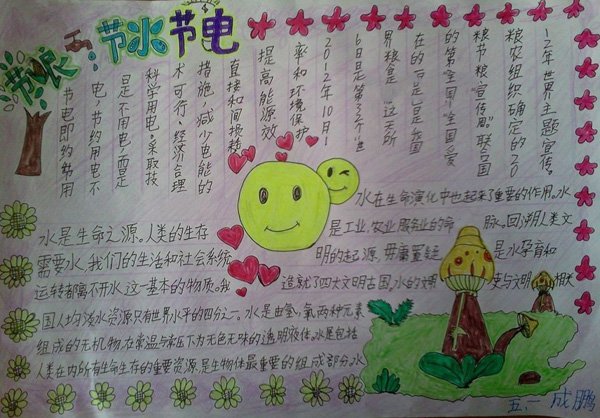 节粮
节水节电
节电即约节用
电,节约用电不
是不用电,而是
科学用电。采取技
术可行、经济合理
措施,减少电能的
直接和间接耗
提高能源效
率和环境保护
2012年10月1
6日是第32个世
界粮是.“这天所
在的一周是我国
的第“全国”全国爱
粮节粮“宣传周”联合国
粮农组织确定的20
12年世界主题宣传。
水是生命之源。人类的生存
需要水,我们的生活和社会系统
运转都离不开水这一基本的物质。我
国人均淡水资源只有世界水平的四分之一。水是由氢、氧两种元素
组成的无机物,在常温与常压下为无色无味的透明液体。水是包括
人类在内所有生命生存的重要资源,是生物体最重要的组成部分。水
水在生命演化中也起来了重要的作用。水
是工业,农业,服务业的命脉。回溯人类文
明的起源,毋庸置疑是水孕育和
造就了四大文明古国,水的文明史与文明相关
五、一 成鹏